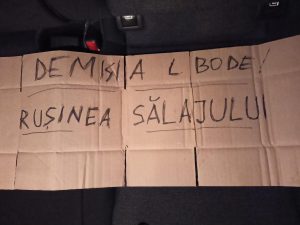 DEMISIA L BODE!
RUȘINEA SĂLAJULUI